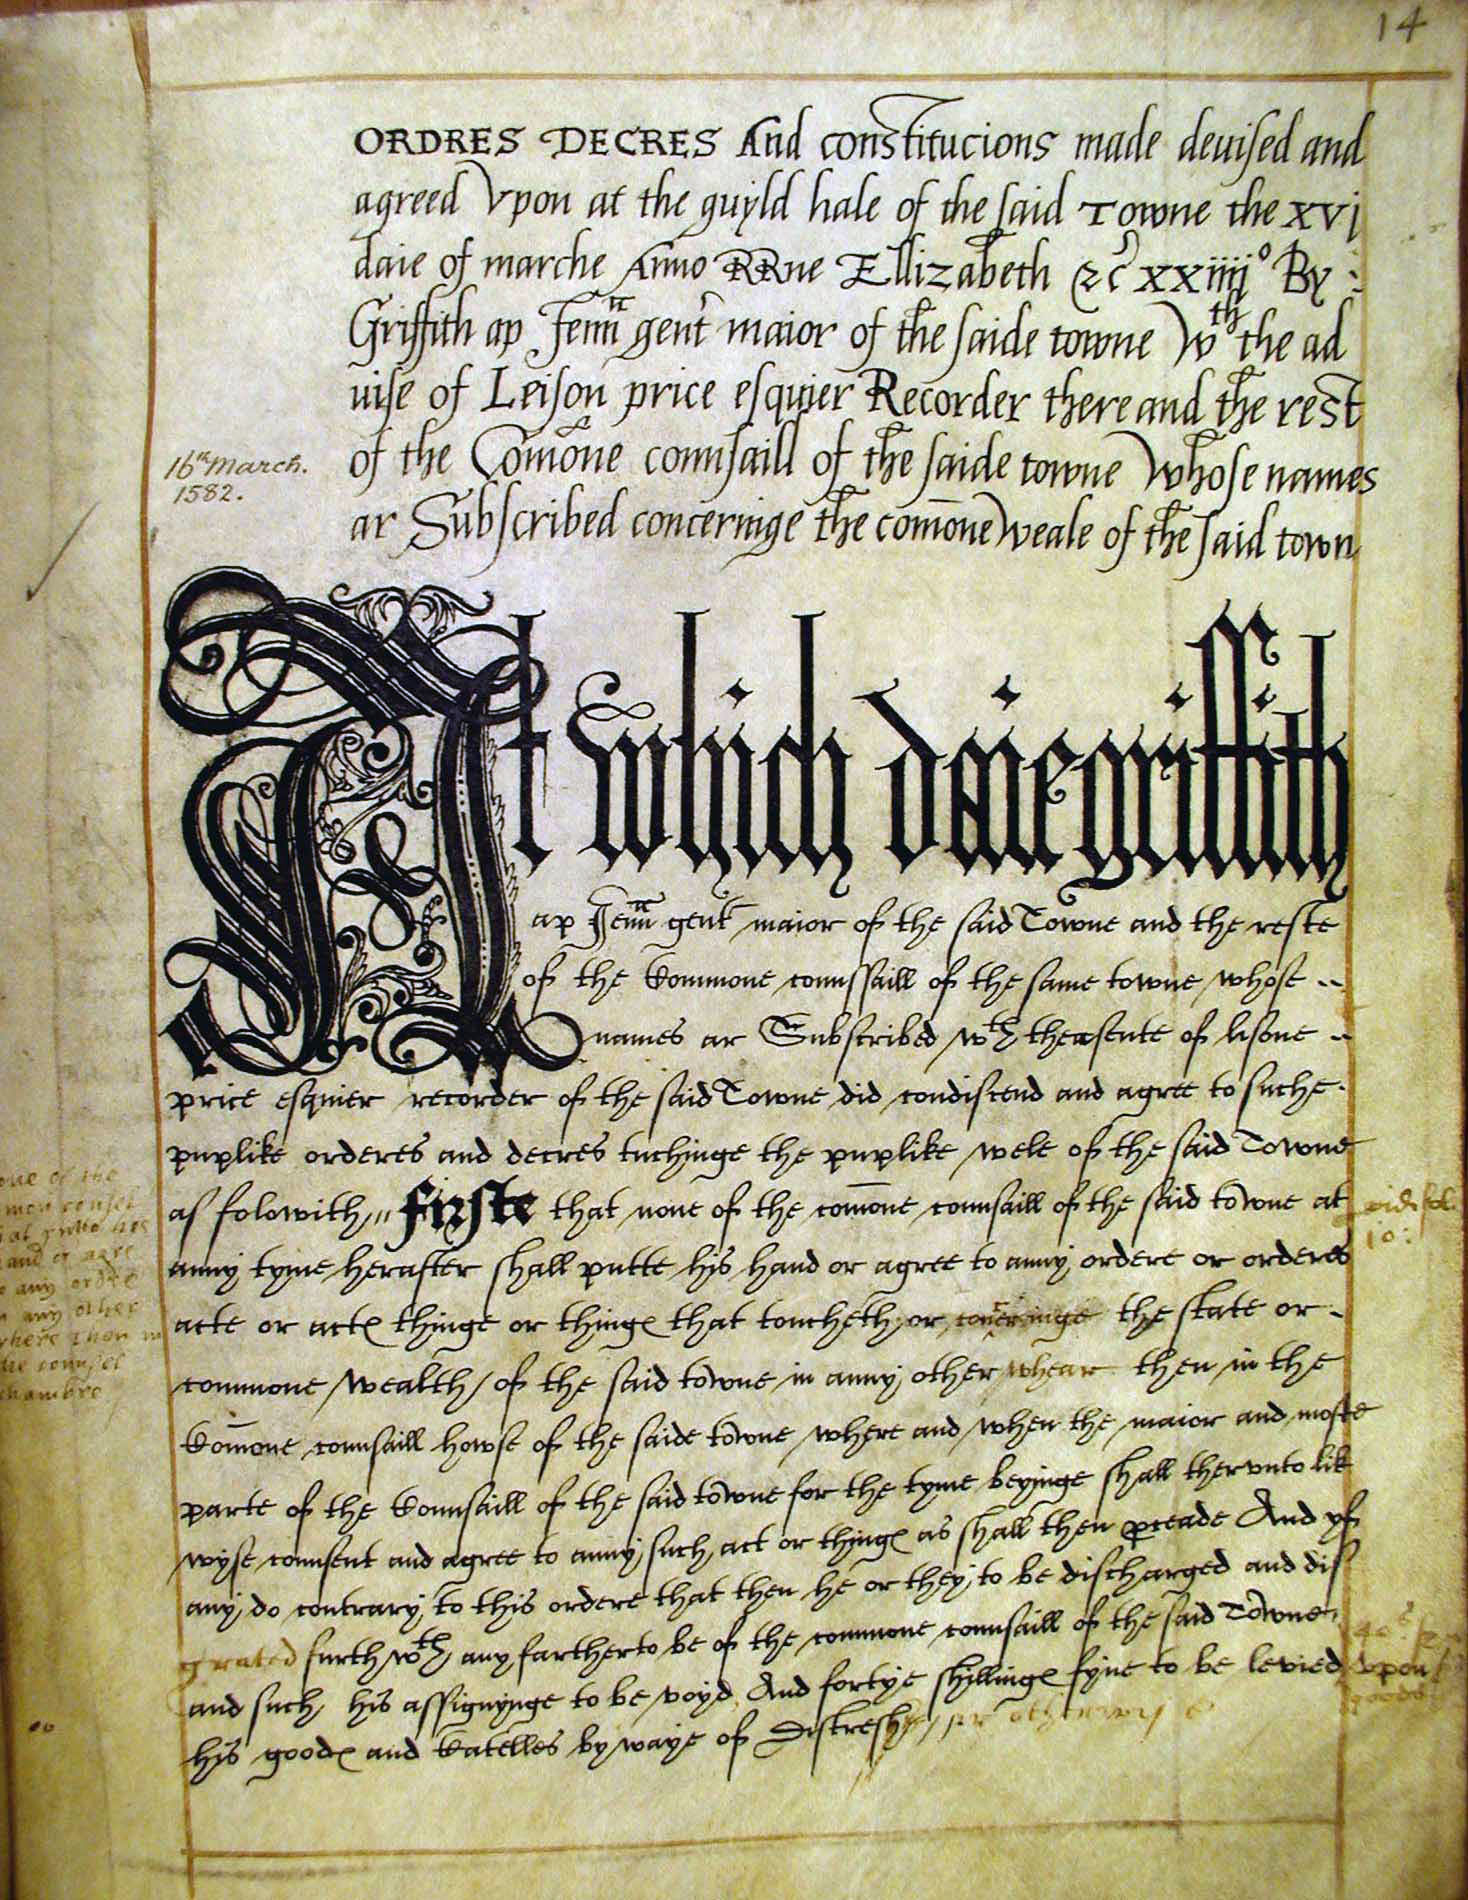 14
ORDRES DECRES And constitucions made deuised and
agreed Vpon at the guyld hale of the said Towne the XVj
daie of marche Anno RRne Ellizabeth &c XXiiijº By
Griffith ap Jeun gent maior of the saide towne Wth the ad
uise of Leison price esquier Recorder there and the rest
of the Comōne counsaill of the saide towne Whose names
16th March.
1582.
ar Subscribed concerninge the comōne Weale of the said town
At which daie griffith
ap Jeun gent maior of the said Towne and the reste
of the Commone counsaill of the same towne whose
names ar Subscribed wth theasente of lisone
price esquier recorder of the said Towne did condiscend and agree to suche
puplike orderes and decres tuchinge the puplike wele of the said Towne
as folowith,,, firste that none of the comōne counsaill of the said towne at
vide fol.
10:
anny tyme herafter shall putte his hand or agree to anny ordere or orderes
acte or actes thinge or thinges that toucheth or concerninge the state or
commone wealth / of the said towne in anny other whear then in the
Comōne counsaill howse of the saide towne where and when the maior and moste
parte of the Counsaill of the said towne for the tyme beyinge shall thervnto lik
wyse counsent and agree to anny such act or thinges as shall then pceade And yf
any do contrary to this ordere that then he or they to be discharged and dis
grated furth wth any farther to be of the commone counsaill of the said Towne
and such his assignynge to be voyd And fortye shillinges fyne to be levied
vpon
his goodes and Catelles by waye of Distresh or otherwyse